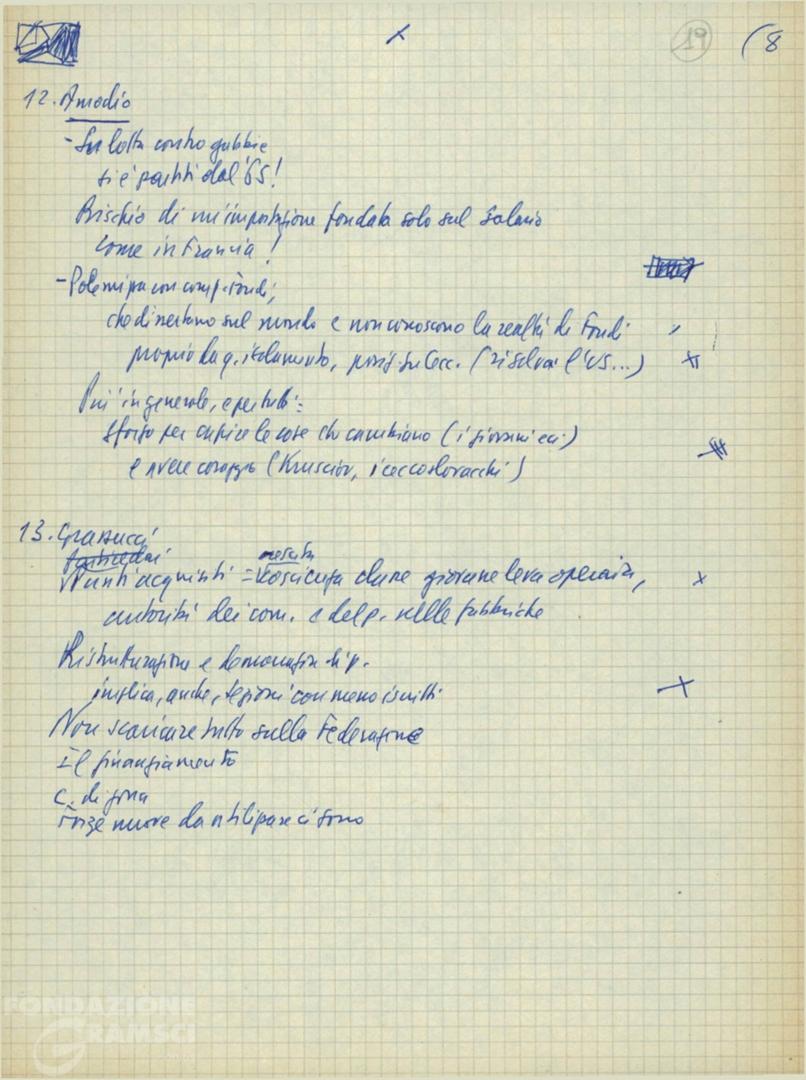 19 (8
12. Amodio
- Su lotta contro gabbie
si è partiti dal '65!
Rischio di un'impostazione fondata solo sul salario
come in Francia!
- Polemica con comp. Fondi,
che discettano sul mondo e non conoscono la realtà di Fondi
proprio da q. isolamento, posiz. su Cec. (
Più in generale, e per tutti:
sforzo per capire le cose che cambiano (i giovani ecc.)
e avere coraggio (Krusciov, i cecoslovacchi)
13. Grassucci
Punti acquisiti = crescita
coscienza di una giovane leva operaia,
autorità dei com. e del p. nelle fabbriche
Ristrutturazione e democrazia di p.
implica, anche, sezioni con meno iscritti
Non scaricare tutto sulla Federazione
Il finanziamento
C. di zona
Forze nuove da utilizzare ci sono
FONDAZIONE
GRAMSCI